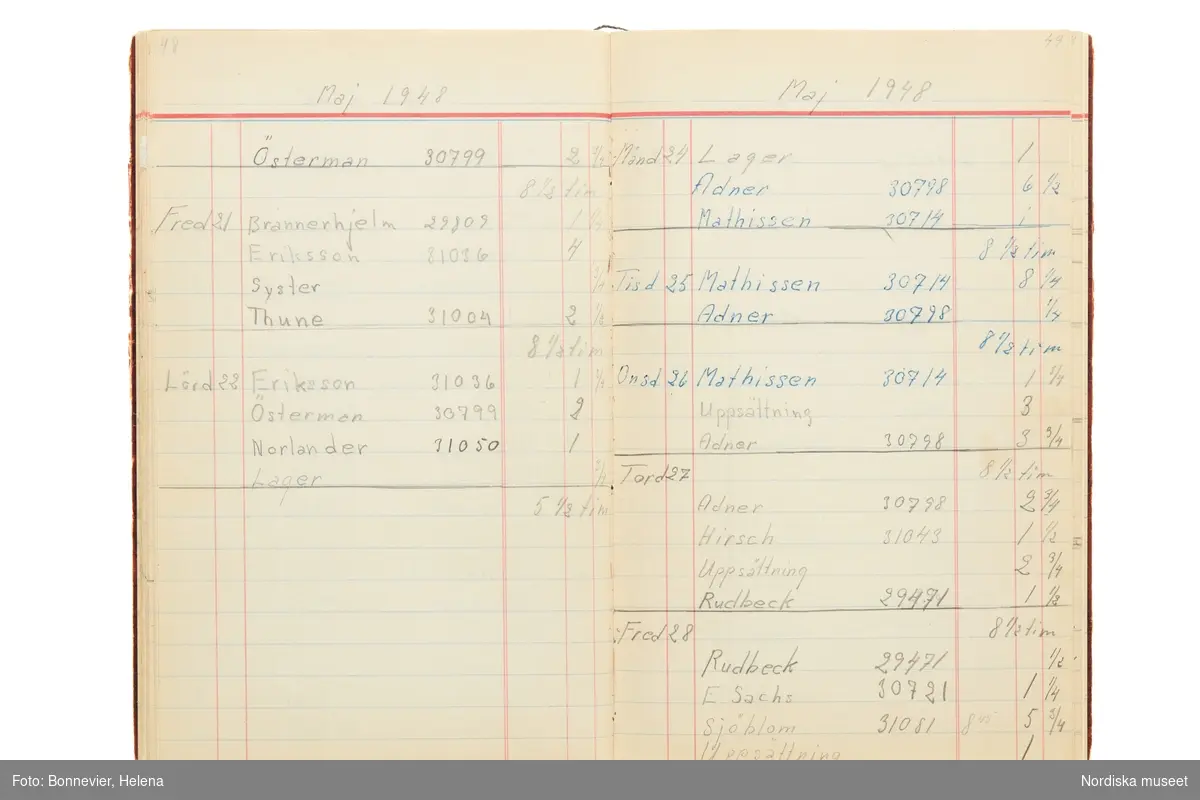 48
Maj 1948
Österman 30799 2 1/4
8 1/2 tim
Fred 21 Brännerhjelm 29809 1
Eriksson 31036 4
Syster
Thune 31004 2 1/2
8 1/2 tim
Lörd 22 Eriksson 31036 1
Österman 30799 2
Norlander 31050 1
Lager
5 1/2 tim
Maj 1948
Månd 24 Lager 1
Adner 30798 6 1/2
Mathissen 30714 1
8 1/2 tim
Tisd 25 Mathissen 30714 8 1/4
Adner 30798 1/4
8 1/2 tim
Onsd 26 Mathissen 30714 1
Uppsättning 3
Adner 30798 3 3/4
Tord 27 8 1/2 tim
Adner 30798 2 3/4
Hirsch 31043 1 1/2
Uppsättning 2 3/4
Rudbeck 29471 1 1/2
Fred 28 8 1/2 tim
Rudbeck 29471 1/2
E Sachs 30721 1 1/4
Sjöblom 31081 5 3/4
Uppsättning 1
Foto: Bonnevier, Helena
Nordiska museet